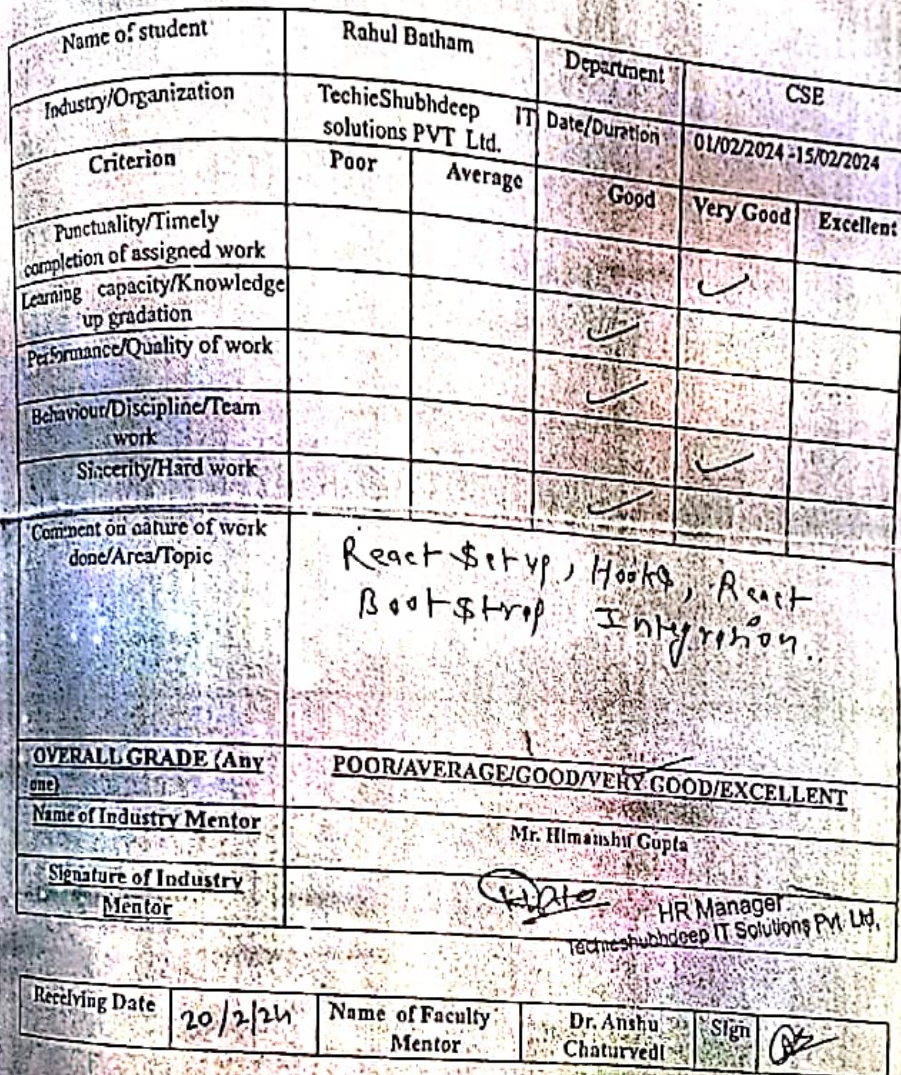 Name of student Rahul Batham Department CSE
Industry/Organization TechieShubhdeep IT solutions PVT Ltd. Date/Duration 01/02/2024 -15/02/2024
Criterion Poor Average Good Very Good Excellent
Punctuality/Timely
completion of assigned work ✓
Learning capacity/Knowledge
up gradation ✓
Performance/Quality of work ✓
Behaviour/Discipline/Team
work ✓
Sincerity/Hard work ✓
Comment on nature of work
done/Area/Topic
React Setup, Hooks, React
Bootstrap Integration.
OVERALL GRADE (Any
one)
POOR/AVERAGE/GOOD/VERY GOOD/EXCELLENT
Name of Industry Mentor Mr. Himanshu Gupta
Signature of Industry
Mentor
HR Manager
Techieshubhdeep IT Solutions Pvt. Ltd.
Receiving Date 20/2/24 Name of Faculty Mentor Dr. Anshu Chaturvedi Sign